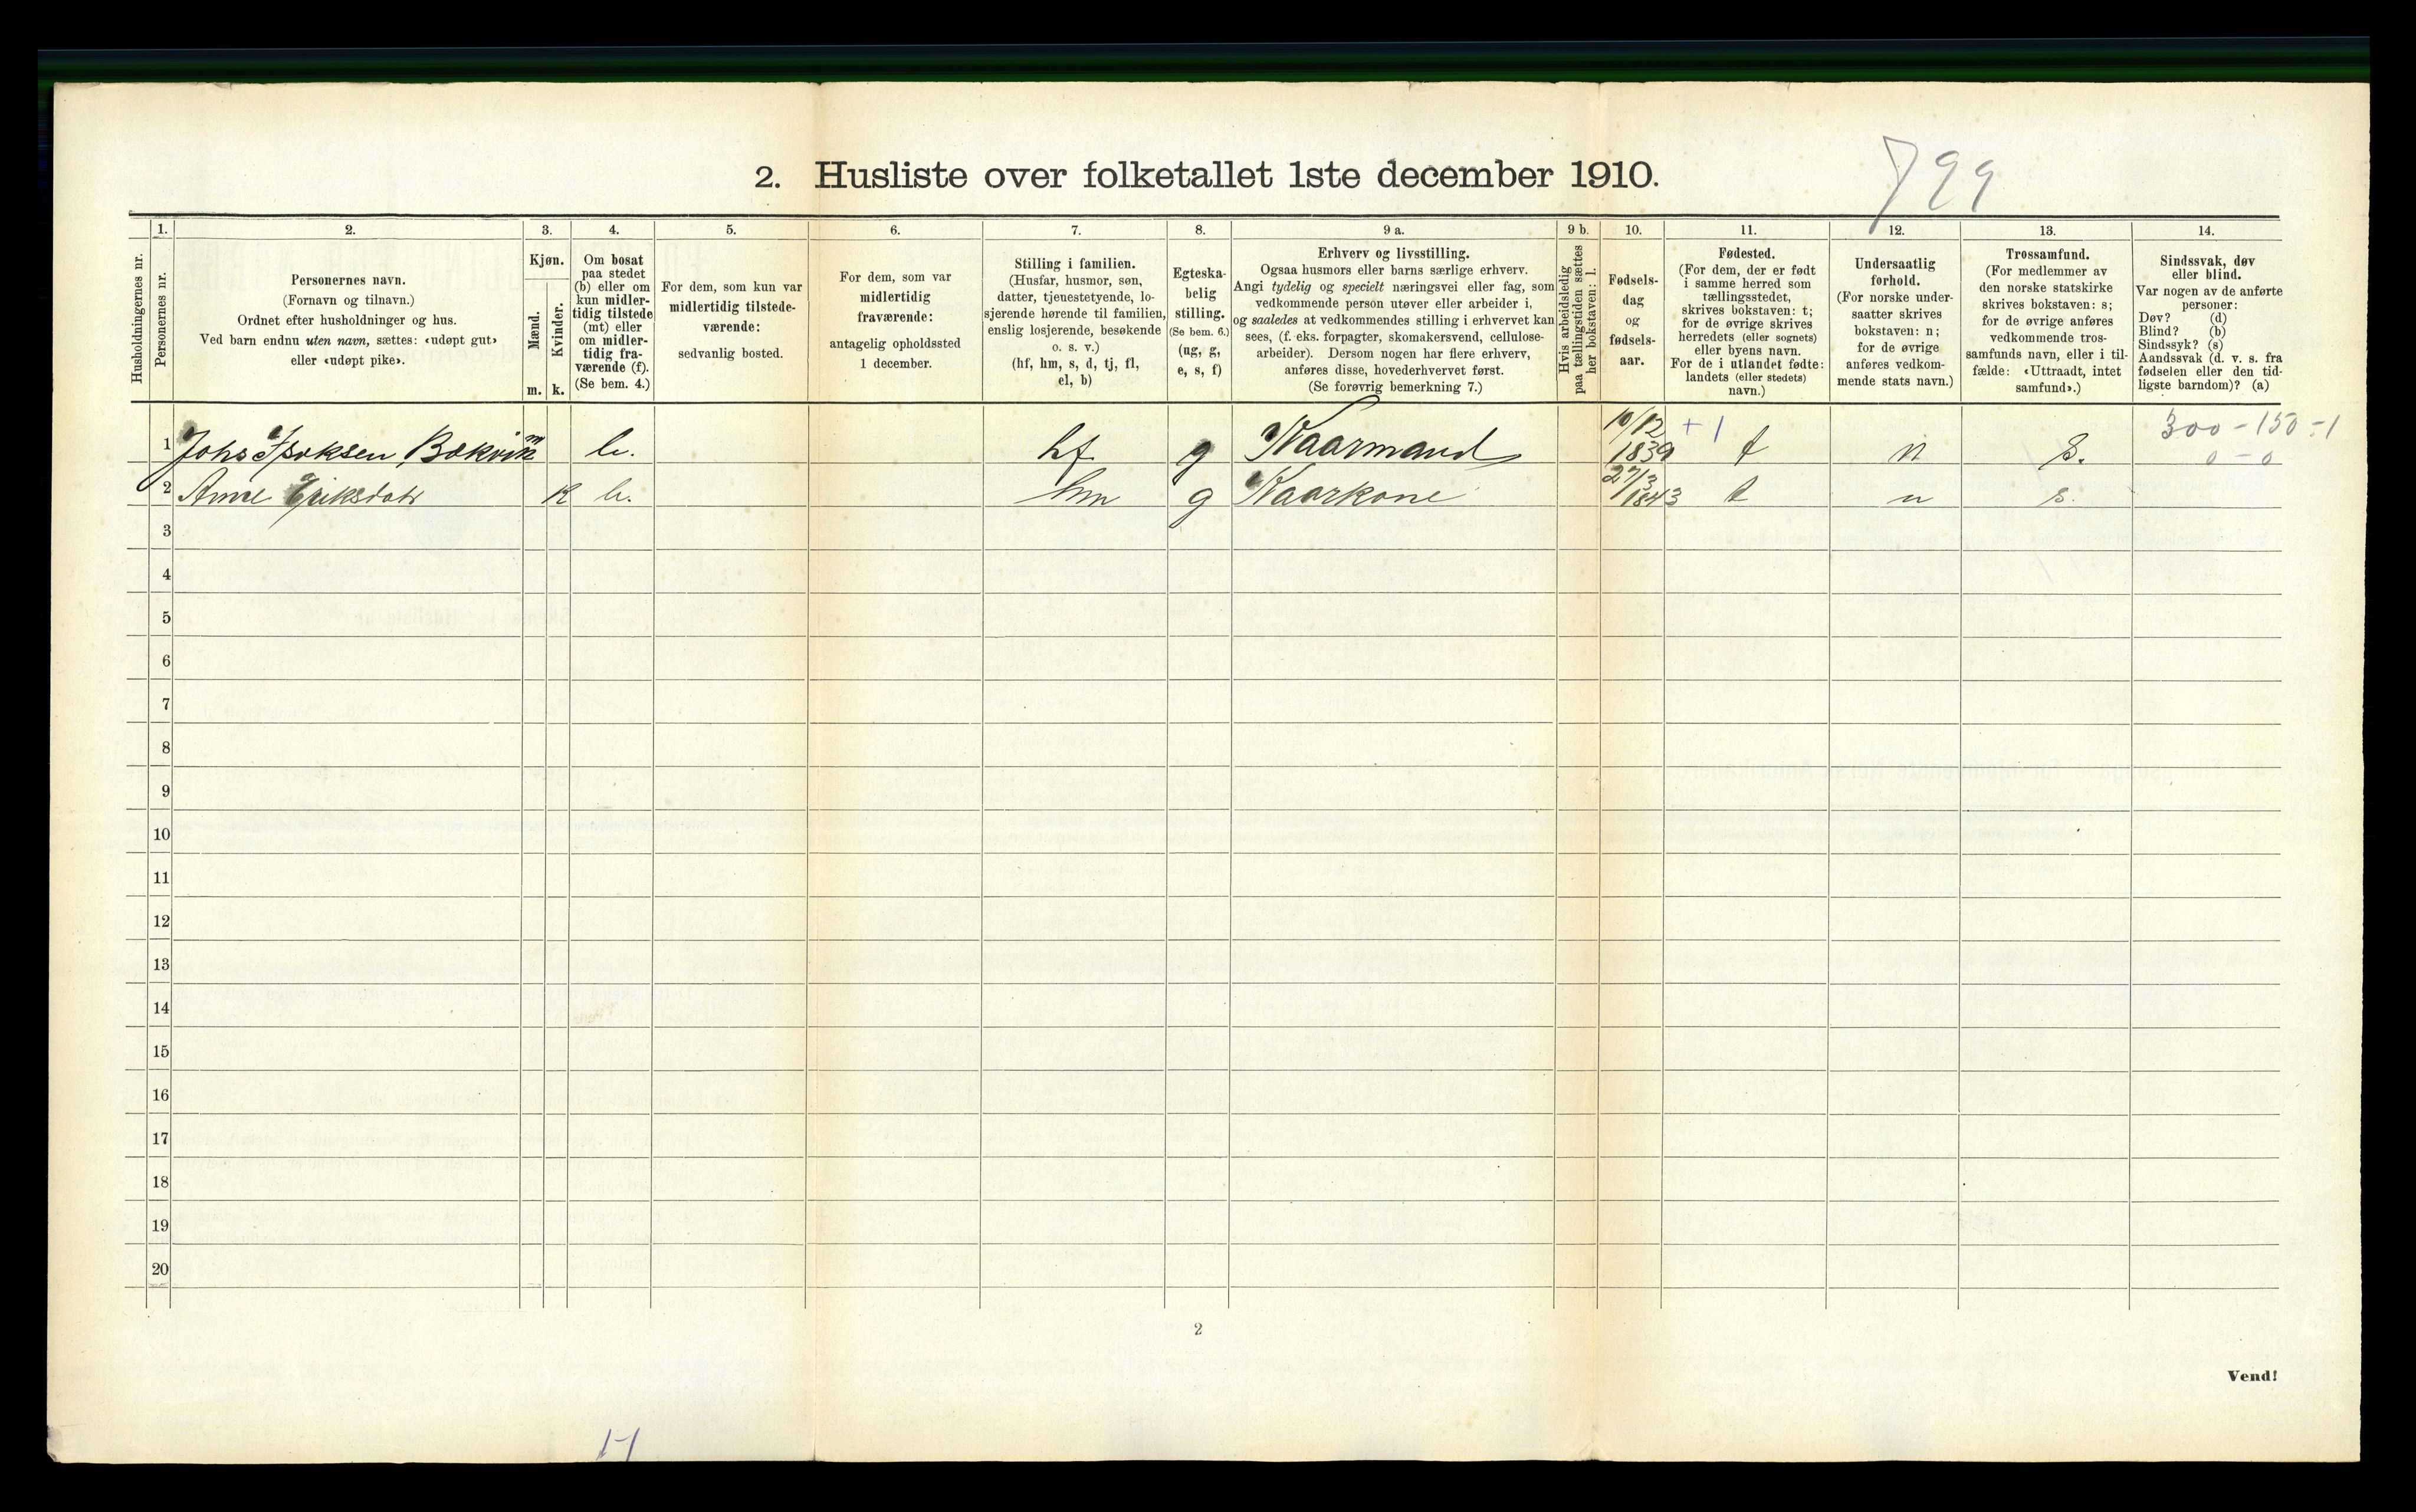 2. Husliste over folketallet 1ste december 1910.
799
Husholdningernes nr.
1. Personernes nr.
2. Personernes navn.
(Fornavn og tilnavn.)
Ordnet efter husholdninger og hus.
Ved barn endnu uten navn, sættes: «udøpt gut»
eller «udøpt pike».
3. Kjøn.
Mænd. m.
Kvinder. k.
4. Om bosat
paa stedet
(b) eller om
kun midler-
tidig tilstede
(mt) eller
om midler-
tidig fra-
værende (f).
(Se bem. 4.)
5. For dem, som kun var
midlertidig tilstede-
værende:
sedvanlig bosted.
6. For dem, som var
midlertidig
fraværende:
antagelig opholdssted
1 december.
7. Stilling i familien.
(Husfar, husmor, søn,
datter, tjenestetyende, lo-
sjerende hørende til familien,
enslig losjerende, besøkende
o. s. v.)
(hf, hm, s, d, tj, fl,
el, b)
8. Egteska-
belig
stilling.
(Se bem. 6.)
(ug, g,
e, s, f)
9 a. Erhverv og livsstilling.
Ogsaa husmors eller barns særlige erhverv.
Angi tydelig og specielt næringsvei eller fag, som
vedkommende person utøver eller arbeider i,
og saaledes at vedkommendes stilling i erhvervet kan
sees, (f. eks. forpagter, skomakersvend, cellulose-
arbeider). Dersom nogen har flere erhverv,
anføres disse, hovederhvervet først.
(Se forøvrig bemerkning 7.)
9 b. Hvis arbeidsledig
paa tællingstiden sættes
her bokstaven: l.
10. Fødsels-
dag
og
fødsels-
aar.
11. Fødested.
(For dem, der er født
i samme herred som
tællingsstedet,
skrives bokstaven: t;
for de øvrige skrives
herredets (eller sognets)
eller byens navn.
For de i utlandet fødte:
landets (eller stedets)
navn.)
12. Undersaatlig
forhold.
(For norske under-
saatter skrives
bokstaven: n;
for de øvrige
anføres vedkom-
mende stats navn.)
13. Trossamfund.
(For medlemmer av
den norske statskirke
skrives bokstaven: s;
for de øvrige anføres
vedkommende tros-
samfunds navn, eller i til-
fælde: «Uttraadt, intet
samfund».)
14. Sindssvak, døv
eller blind.
Var nogen av de anførte
personer:
Døv? (d)
Blind? (b)
Sindssyk? (s)
Aandssvak (d. v. s. fra
fødselen eller den tid-
ligste barndom)? (a)
1 Johs m b. hf g Kaarmand 10/12 1839 + 1 t n s. 300 - 150 - 1
0 - 0
2 Anne Eriksdatr k b. hm g Kaarkone 27/3 1843 t n s.
3
4
5
6
7
8
9
10
11
12
13
14
15
16
17
18
19
20
2
Vend!